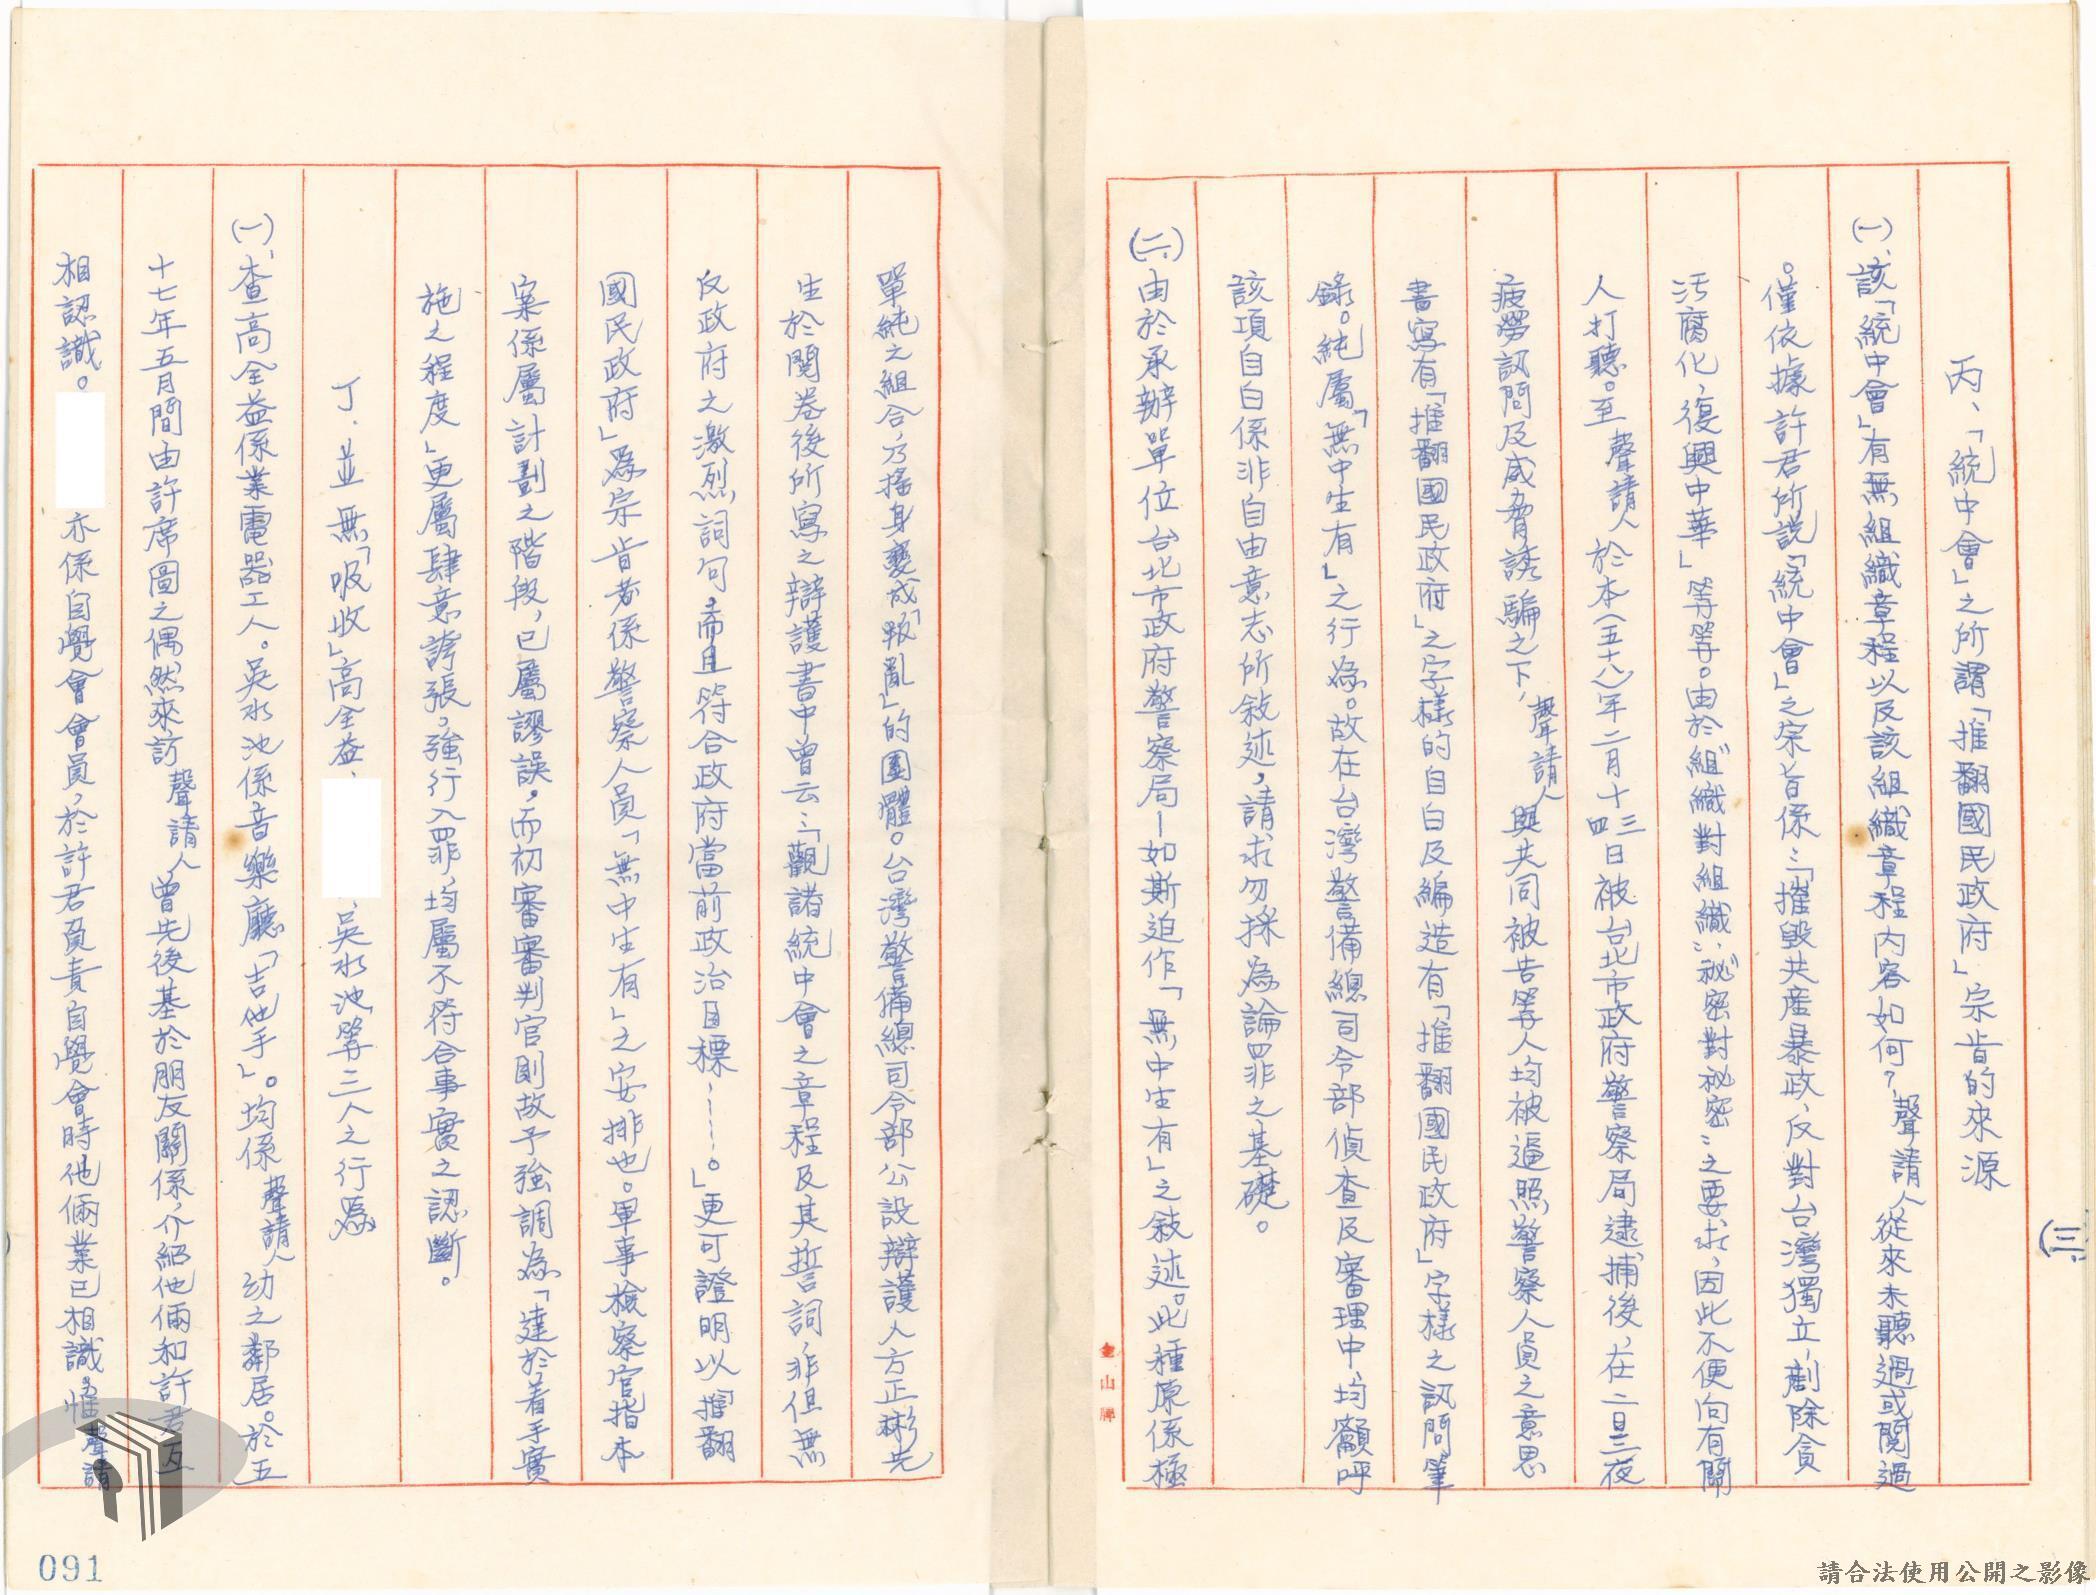 (三)
丙、「統中會」之所謂「推翻國民政府」宗旨的來源
(一)、該「統中會」有無組織章程以及該組織章程內容如何?聲請人從來未聽過或閱過
。僅依據許君所說「統中會」之宗旨係:「摧毀共產暴政、反對台灣獨立、剷除貪
污腐化、復興中華」等等。由於"組織對組織""秘密對秘密"之要求,因此不便向有關
人打聽。至聲請人於本(五十八)年二月十三四日被台北市政府警察局逮捕後,在二日三夜
疲勞訊問及威脅誘騙之下,聲請人與共同被告等人均被逼照警察人員之意思
書寫有「推翻國民政府」之字樣的自白及編造有「推翻國民政府」字樣之訊問筆
錄。純屬「無中生有」之行為。故在台灣警備總司令部偵查及審理中,均籲呼
該項自白係非自由意志所敍述,請求勿採為論罪之基礎。
(二)、由於承辦單位台北市政府警察局—如斯迫作「無中生有」之敍述。此種原係極
單純之組合,乃搖身變成「叛亂」的團體。台灣警備總司令部公設辯護人方正彬先
生於閱卷後所寫之辯護書中曾云:「觀諸統中會之章程及其誓詞,非但無
反政府之激烈詞句,而且符合政府當前政治目標……。」更可證明以「推翻
國民政府」為宗旨者係警察人員「無中生有」之安排也。軍事檢察官指本
案係屬計劃之階段,已屬謬誤,而初審審判官則故予強調為「達於着手實
施之程度」更屬肆意誇張。強行入罪,均屬不符合事實之認斷。
丁、並無「吸收」高全益、、吳水池等三人之行為
(一)、查高全益係業電器工人。吳水池係音樂廳「吉他手」。均係聲請人幼之鄰居。於五
十七年五月間由許席圖之偶然來訪聲請人曾先後基於朋友關係,介紹他倆和許君互
相認識。亦係自覺會會員,於許君負責自覺會時他倆業已相識。惟聲請
金山牌
091
請合法使用公開之影像